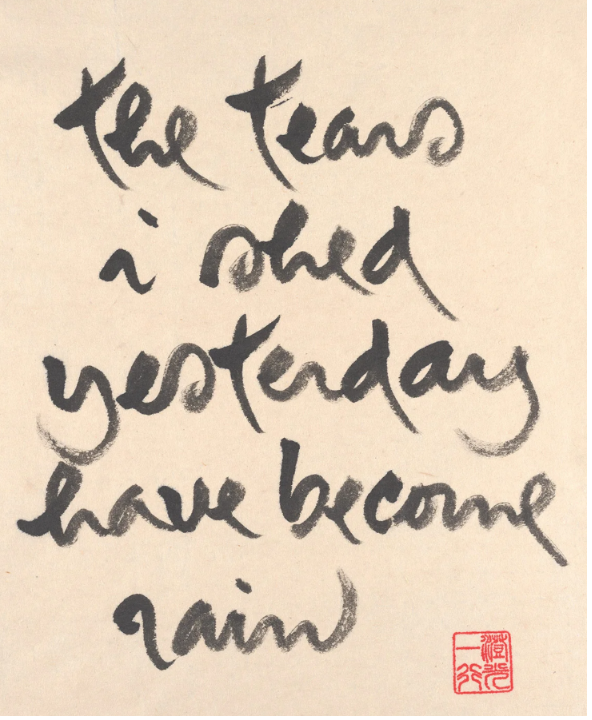 the tears
i shed
yesterday
have become
rain
澄光
一行